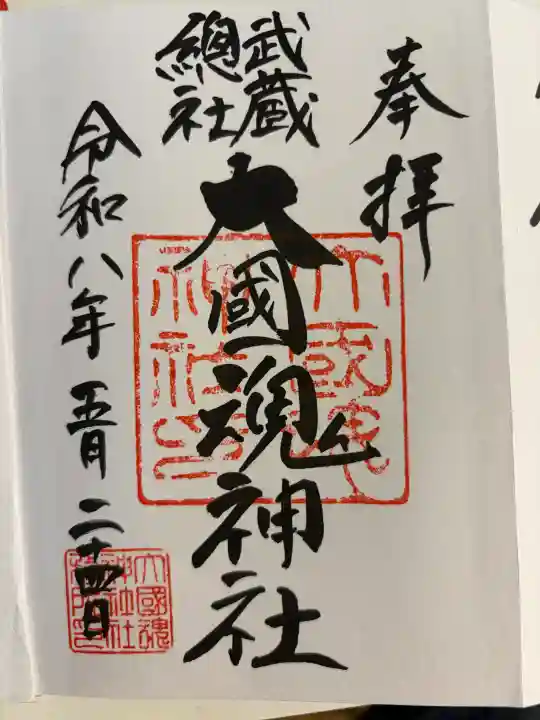 奉拝
武蔵
總社
大國魂神社
令和八年五月二十四日
大國魂
神社印
大國魂
神社社
務所印